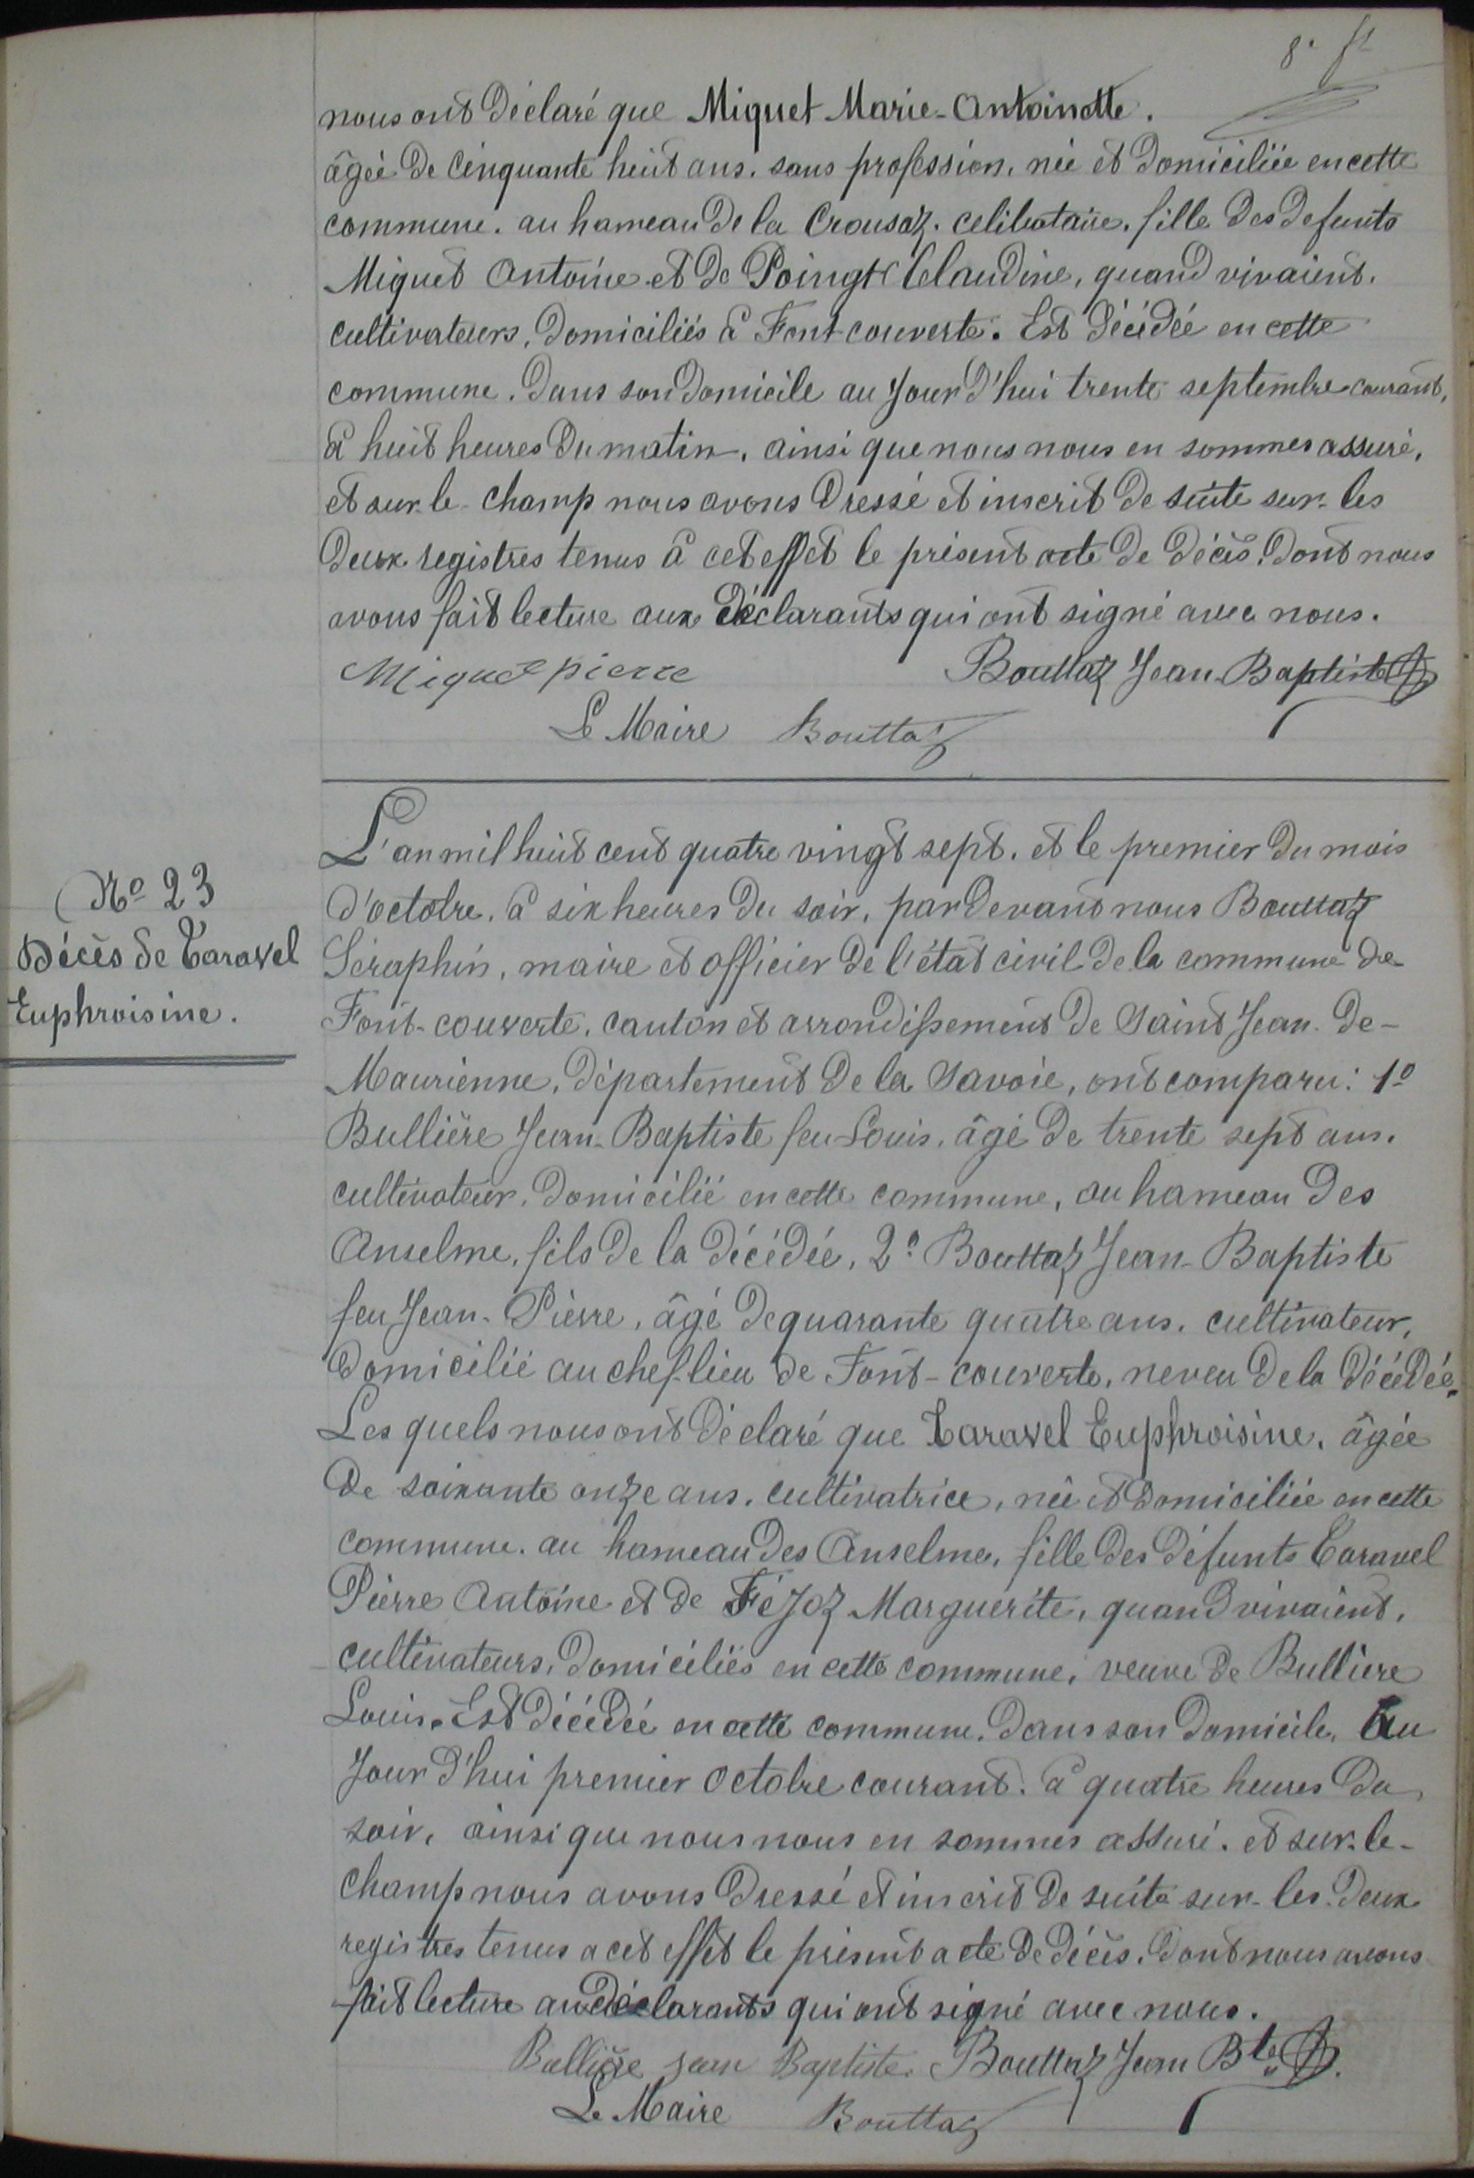 8e ft
nous ont déclaré que Miquet Marie-Antoinette.
âgée de cinquante huit ans. sans profession, née et domiciliée en cette
commune. au hameau de la Crousaz. celibataire, fille des defunts
Miquet Antoine et de Poingt Claudine, quand vivaient.
cultivateurs, domiciliés à Font-couverte. Est décédée en cette
commune. dans son domicile au jour d'hui trente septembre courant,
à huit heures du matin, ainsi que nous nous en sommes assuré,
et sur-le-champ nous avons dressé et inscrit de suite sur-les
deux registres tenus à cet effet le présent acte de décès. dont nous
avons fait lecture aux déclarants qui ont signé avec nous.
Miquet pierre Bouttaz Jean-Baptiste
Le Maire Bouttaz
No 23
Décès de Taravel
Euphroisine.
L'an mil huit cent quatre vingt sept. et le premier du mois
d'octobre. à six heures du soir, par devant nous Bouttaz
Séraphin, maire et officier de l'état civil de la commune de
Font-couverte, canton et arrondissement de Saint Jean-de-
Maurienne, département de la Savoie, ont comparu: 1o
Bullière Jean-Baptiste feu Louis, âgé de trente sept ans.
cultivateur, domicilié en cette commune, au hameau des
Anselme, fils de la décédée, 2o Bouttaz Jean-Baptiste
feu Jean-Pierre, âgé de quarante quatre ans. cultivateur,
domicilié au chef-lieu de Font-couverte, neveu de la décédée.
Les quels nous ont déclaré que Taravel Euphroisine, âgée
de soixante onze ans. cultivatrice, née et domiciliée en cette
commune. au hameau des Anselme, fille des défunts Taravel
Pierre Antoine et de Féjoz Marguerite, quand vivaient,
cultivateurs, domiciliés en cette commune, veuve de Bulliere
Louis. Est décédée en cette commune. dans son domicile, Au
jour d'hui premier octobre courant. à quatre heures du
soir, ainsi que nous nous en sommes assuré. et sur-le-
champ nous avons dressé et inscrit de suite sur-les deux
registres tenus a cet effet le présent acte de décès. dont nous avons
fait lecture au déclarants qui ont signé avec nous.
Bullière jean Baptiste. Bouttaz Jean Bte
Le Maire Bouttaz